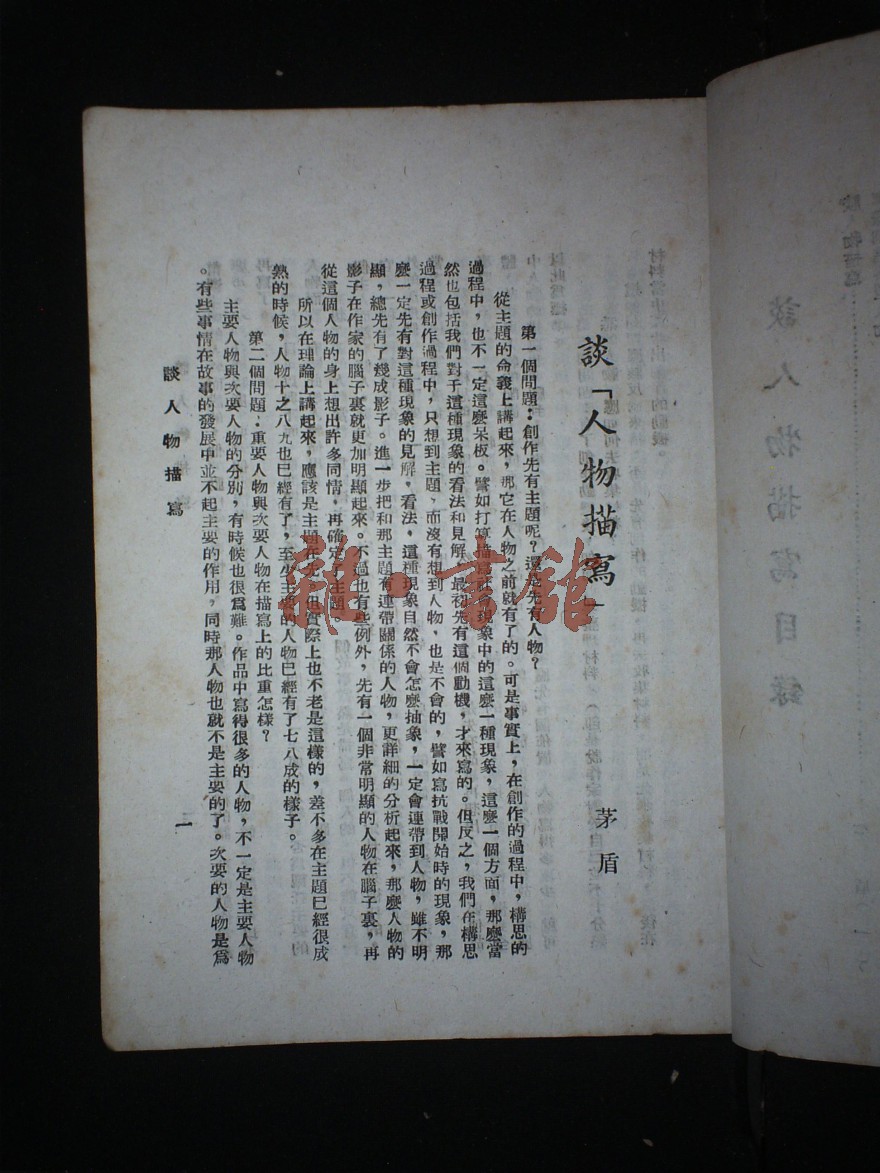 談「人物描寫」
茅盾
第一個問題：創作先有主題呢？還是先有人物？
從主題的命義上講起來，那它在人物之前就有了的。可是事實上，在創作的過程中，構思的
過程中，也不一定這麼呆板。譬如打算描寫社會現象中的這麼一種現象，這麼一個方面，那麼當
然也包括我們對于這種現象的看法和見解，最初先有這個動機，才來寫的。但反之，我們在構思
過程或創作過程中，只想到主題，而沒有想到人物，也是不會的，譬如寫抗戰開始時的現象，那
麼一定先有對這種現象的見解，看法，這種現象自然不會怎麼抽象，一定會連帶到人物，雖不明
顯，總先有了幾成影子。進一步把和那主題有連帶關係的人物，更詳細的分析起來，那麼人物的
影子在作家的腦子裏就更加明顯起來。不過也有些例外，先有一個非常明顯的人物在腦子裏，再
從這個人物的身上想出許多同情，再確定了主題。
所以在理論上講起來，應該是主題在先，但實際上也不老是這樣的，差不多在主題已經很成
熟的時候，人物十之八九也已經有了，至少主要的人物已經有了七八成的樣子。
第二個問題：重要人物與次要人物在描寫上的比重怎樣？
主要人物與次要人物的分別，有時候也很爲難。作品中寫得很多的人物，不一定是主要人物
。有些事情在故事的發展中並不起主要的作用，同時那人物也就不是主要的了。次要的人物是爲
談人物描寫
一
龍書館
談人物描寫目錄